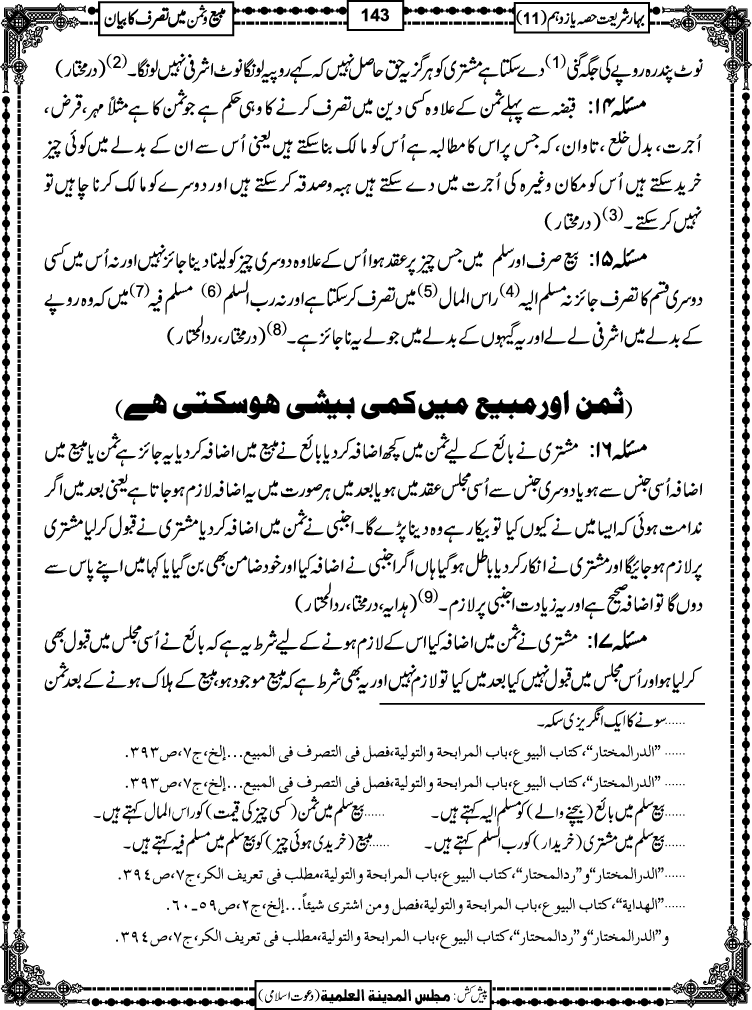 بہار شریعت حصہ یازدہم (11)
143
مبیع و ثمن میں تصرف کا بیان
نوٹ پندرہ روپے کی جگہ گنی (1) دے سکتا ہے مشتری کو ہرگز یہ حق حاصل نہیں کہ کہے روپیہ لونگا نوٹ اشرفی نہیں لونگا۔ (2) (درمختار)
مسئلہ ۱۴: قبضہ سے پہلے ثمن کے علاوہ کسی دین میں تصرف کرنے کا وہی حکم ہے جو ثمن کا ہے مثلاً مہر، قرض،
اُجرت، بدل خلع، تاوان، کہ جس پر اس کا مطالبہ ہے اُس کو مالک بنا سکتے ہیں یعنی اُس سے ان کے بدلے میں کوئی چیز
خرید سکتے ہیں اُس کو مکان وغیرہ کی اُجرت میں دے سکتے ہیں ہبہ و صدقہ کر سکتے ہیں اور دوسرے کو مالک کرنا چاہیں تو
نہیں کر سکتے۔ (3) (درمختار)
مسئلہ ۱۵: بیع صرف اور سلم میں جس چیز پر عقد ہوا اُس کے علاوہ دوسری چیز کو لینا دینا جائز نہیں اور نہ اُس میں کسی
دوسری قسم کا تصرف جائز نہ مسلم الیہ (4) راس المال (5) میں تصرف کر سکتا ہے اور نہ رب السلم (6) مسلم فیہ (7) میں کہ وہ روپے
کے بدلے میں اشرفی لے لے اور یہ گیہوں کے بدلے میں جو لے یہ ناجائز ہے۔ (8) (درمختار، ردالمحتار)
(ثمن اور مبیع میں کمی بیشی ھوسکتی ھے)
مسئلہ ۱۶: مشتری نے بائع کے لیے ثمن میں کچھ اضافہ کر دیا یا بائع نے مبیع میں اضافہ کر دیا یہ جائز ہے ثمن یا مبیع میں
اضافہ اُسی جنس سے ہو یا دوسری جنس سے اُسی مجلس عقد میں ہو یا بعد میں ہر صورت میں یہ اضافہ لازم ہو جاتا ہے یعنی بعد میں اگر
ندامت ہوئی کہ ایسا میں نے کیوں کیا تو بیکار ہے وہ دینا پڑے گا۔ اجنبی نے ثمن میں اضافہ کر دیا مشتری نے قبول کر لیا مشتری
پر لازم ہو جائیگا اور مشتری نے انکار کر دیا باطل ہو گیا ہاں اگر اجنبی نے اضافہ کیا اور خود ضامن بھی بن گیا یا کہا میں اپنے پاس سے
دوں گا تو اضافہ صحیح ہے اور یہ زیادت اجنبی پر لازم۔ (9) (ہدایہ، درمختار، ردالمحتار)
مسئلہ ۱۷: مشتری نے ثمن میں اضافہ کیا اس کے لازم ہونے کے لیے شرط یہ ہے کہ بائع نے اُسی مجلس میں قبول بھی
کر لیا ہو اور اُس مجلس میں قبول نہیں کیا بعد میں کیا تو لازم نہیں اور یہ بھی شرط ہے کہ مبیع موجود ہو، مبیع کے ہلاک ہونے کے بعد ثمن
......سونے کا ایک انگریزی سکہ۔
...... ”الدرالمختار“، کتاب البیوع، باب المرابحة والتولیة، فصل فی التصرف فی المبیع... إلخ، ج۷، ص۳۹۳.
...... ”الدرالمختار“، کتاب البیوع، باب المرابحة والتولیة، فصل فی التصرف فی المبیع... إلخ، ج۷، ص۳۹۳.
......بیع سلم میں بائع (بیچنے والے) کو مسلم الیہ کہتے ہیں۔ ......بیع سلم میں ثمن (کسی چیز کی قیمت) کو راس المال کہتے ہیں۔
......بیع سلم میں مشتری (خریدار) کو رب السلم کہتے ہیں۔ ......مبیع (خریدی ہوئی چیز) کو بیع سلم میں مسلم فیہ کہتے ہیں۔
......”الدرالمختار“ و ”ردالمحتار“، کتاب البیوع، باب المرابحة والتولیة، مطلب فی تعریف الکر، ج۷، ص۳۹۴.
......”الهدایة“، کتاب البیوع، باب المرابحة والتولیة، فصل ومن اشتری شیئاً... إلخ، ج۲، ص۵۹۔۶۰.
و ”الدرالمختار“ و ”ردالمحتار“، کتاب البیوع، باب المرابحة والتولیة، مطلب فی تعریف الکر، ج۷، ص۳۹۴.
پیش کش: مجلس المدینة العلمیة (دعوت اسلامی)